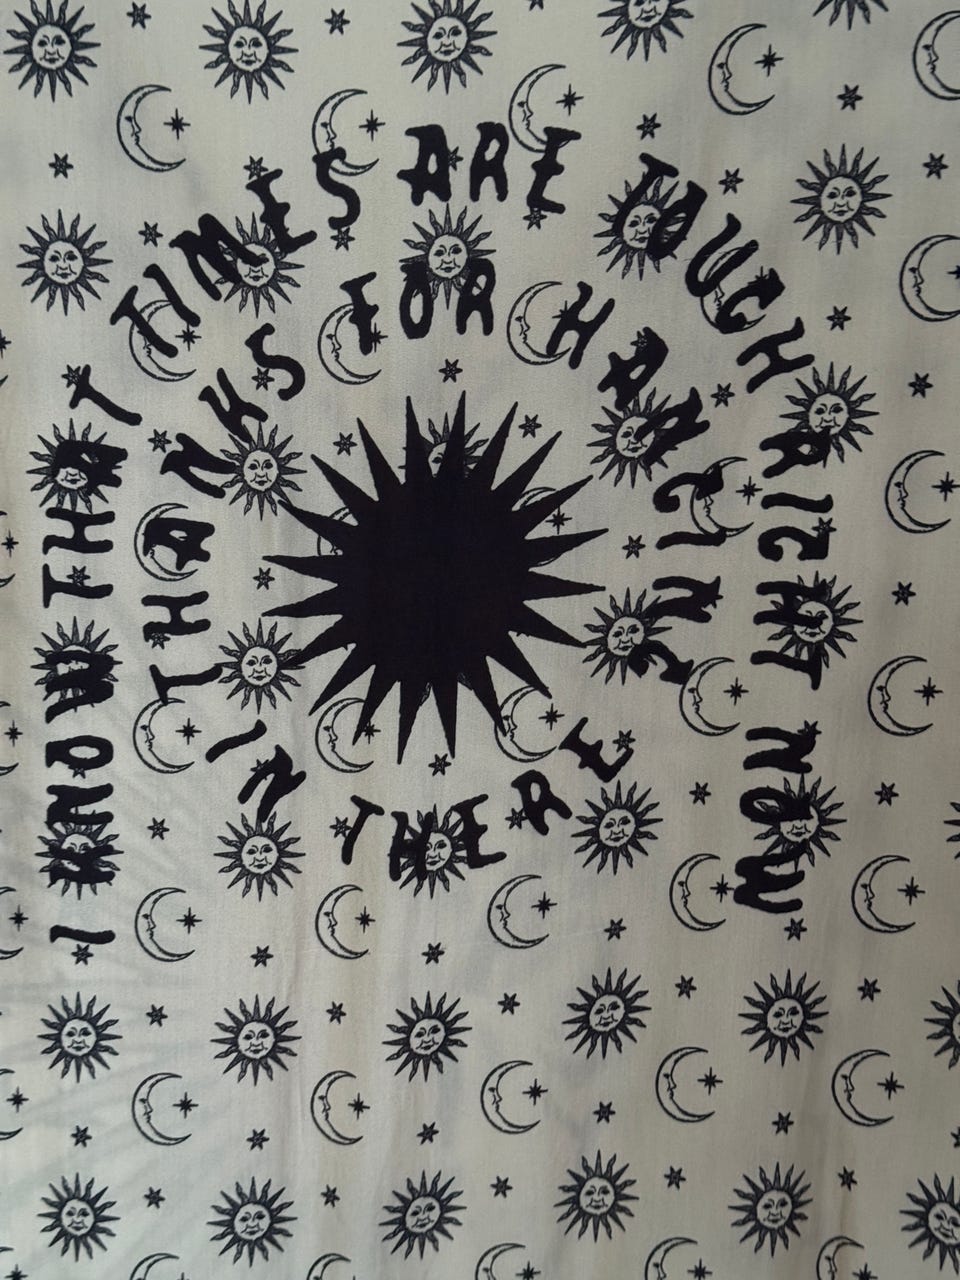 I KNOW THAT TIMES ARE TOUGH RIGHT NOW
THANKS FOR HANGING
IN THERE